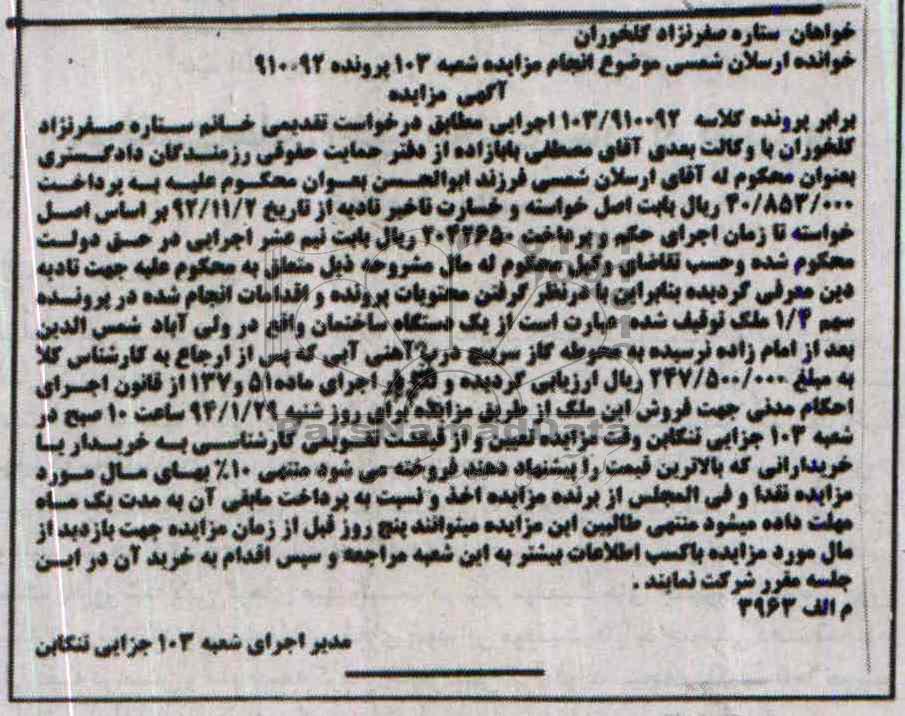 خواهان ستاره صفرنژاد گلخوران
خوانده ارسلان شمسی موضوع انجام مزایده شعبه ۱۰۳ پرونده ۹۱۰۰۹۲
آگهی مزایده
برابر پرونده کلاسه ۱۰۳/۹۱۰۰۹۲ اجرایی مطابق درخواست تقدیمی خانم ستاره صفرنژاد
گلخوران با وکالت بعدی آقای مصطفی بابازاده از دفتر حمایت حقوقی رزمندگان دادگستری
بعنوان محکوم له آقای ارسلان شمسی فرزند ابوالحسن بعنوان محکوم علیه به پرداخت
۴۰/۸۵۳/۰۰۰ ریال بابت اصل خواسته و خسارت تاخیر تادیه از تاریخ ۹۲/۱۱/۲ بر اساس اصل
خواسته تا زمان اجرای حکم و پرداخت ۲۰۴۲۶۵۰ ریال بابت نیم عشر اجرایی در حق دولت
محکوم شده وحسب تقاضای وکیل محکوم له مال مشروحه ذیل متعلق به محکوم علیه جهت تادیه
دین معرفی گردیده بنابراین با درنظر گرفتن محتویات پرونده و اقدامات انجام شده در پرونده
سهم ۱/۴ ملک توقیف شده عبارت است از یک دستگاه ساختمان واقع در ولی آباد شمس الدین
بعد از امام زاده نرسیده به محوطه گاز سرپیچ درب آهنی آبی که پس از ارجاع به کارشناس کلا
به مبلغ ۲۴۷/۵۰۰/۰۰۰ ریال ارزیابی گردیده و در اجرای ماده۵۱ و۱۳۷ از قانون اجرای
احکام مدنی جهت فروش این ملک از طریق مزایده برای روز شنبه ۹۴/۱/۲۹ ساعت ۱۰ صبح در
شعبه ۱۰۳ جزایی تنکابن وقت مزایده تعیین و از قیمت تقویمی کارشناسی به خریدار یا
خریدارانی که بالاترین قیمت را پیشنهاد دهند فروخته می شود منتهی ۱۰٪ بهای مال مورد
مزایده نقدا و فی المجلس از برنده مزایده اخذ و نسبت به پرداخت مابقی آن به مدت یک ماه
مهلت داده میشود منتهی طالبین این مزایده میتوانند پنج روز قبل از زمان مزایده جهت بازدید از
مال مورد مزایده باکسب اطلاعات بیشتر به این شعبه مراجعه و سپس اقدام به خرید آن در این
جلسه مقرر شرکت نمایند .
م الف ۳۹۶۳
مدیر اجرای شعبه ۱۰۳ جزایی تنکابن
ParsNamadData